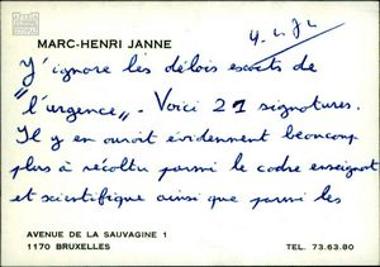 MARC-HENRI JANNE
4.4.74
J'ignore les délais exacts de
"l'urgence". Voici 21 signatures.
Il y en aurait évidemment beaucoup
plus à récolter parmi le cadre enseignant
et scientifique ainsi que parmi les
AVENUE DE LA SAUVAGINE 1
1170 BRUXELLES
TEL. 73.63.80